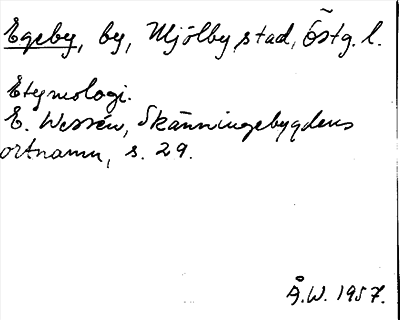 Egeby, by, Mjölby stad, Östg. l.
Etymologi.
E. Wessén, Skänningebygdens
ortnamn, s. 29.
Å.W. 1957.